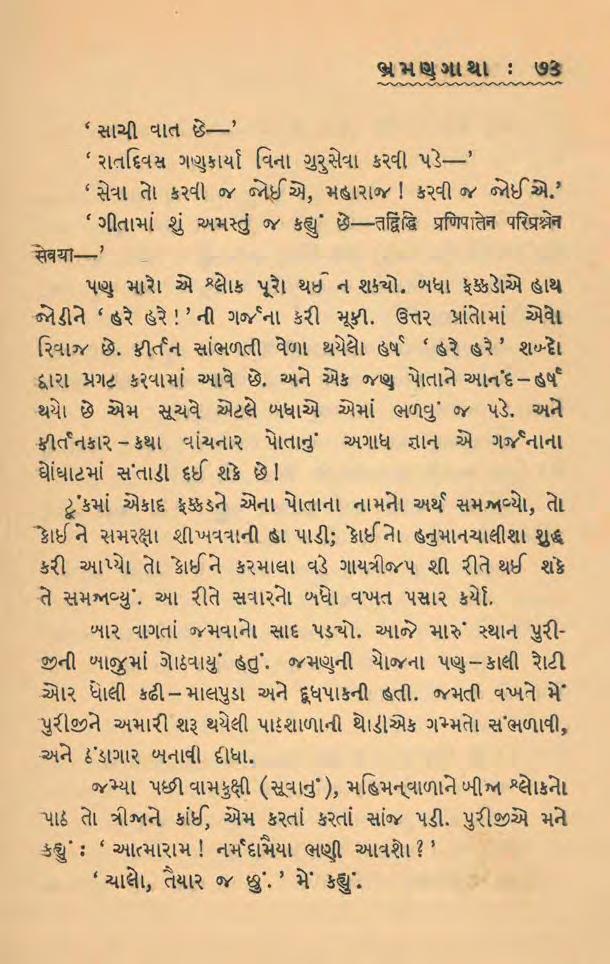 ભ્રમણગાથા : ૭૩
‘ સાચી વાત છે—’
‘ રાતદિવસ ગણકાર્યા વિના ગુરુસેવા કરવી પડે—’
‘ સેવા તો કરવી જ જોઈએ, મહારાજ ! કરવી જ જોઈએ.’
‘ ગીતામાં શું અમસ્તું જ કહ્યું છે—तद्विद्धि प्रणिपातेन परिप्रश्नेन
सेवया—’
પણ મારો એ શ્લોક પૂરો થઈ ન શક્યો. બધા ફક્કડોએ હાથ
જોડીને ‘ હરે હરે ! ’ની ગર્જના કરી મૂકી. ઉત્તર પ્રાંતોમાં એવો
રિવાજ છે. કીર્તન સાંભળતી વેળા થયેલો હર્ષ ‘ હરે હરે ’ શબ્દો
દ્વારા પ્રગટ કરવામાં આવે છે. અને એક જણ પોતાને આનંદ – હર્ષ
થયો છે એમ સૂચવે એટલે બધાએ એમાં ભળવું જ પડે. અને
કીર્તનકાર – કથા વાંચનાર પોતાનું અગાધ જ્ઞાન એ ગર્જનાના
ઘોંઘાટમાં સંતાડી દઈ શકે છે !
ટૂંકમાં એકાદ ફક્કડને એના પોતાના નામનો અર્થ સમજાવ્યો, તો
કોઈને સમરક્ષા શીખવવાની હા પાડી; કોઈનો હનુમાનચાલીશા શુદ્ધ
કરી આપ્યો તો કોઈને કરમાલા વડે ગાયત્રીજપ શી રીતે થઈ શકે
તે સમજાવ્યું. આ રીતે સવારનો બધો વખત પસાર કર્યો.
બાર વાગતાં જમવાનો સાદ પડચો. આજે મારું સ્થાન પુરી-
જીની બાજુમાં ગોઠવાયું હતું. જમણની યોજના પણ – કાલી રોટી
ઓર ધોલી કઢી – માલપુડા અને દૂધપાકની હતી. જમતી વખતે મેં
પુરીજીને અમારી શરૂ થયેલી પાઠશાળાની થોડીએક ગમ્મતો સંભળાવી,
અને ઠંડાગાર બનાવી દીધા.
જમ્યા પછી વામકુક્ષી ( સૂવાનું ), મહિમન્વાળાને બીજા શ્લોકનો
પાઠ તો ત્રીજાને કાંઈ, એમ કરતાં કરતાં સાંજ પડી. પુરીજીએ મને
કહ્યું : ‘ આત્મારામ ! નર્મદામૈયા ભણી આવશો ? ’
‘ ચાલો, તૈયાર જ છું. ’ મેં કહ્યું.